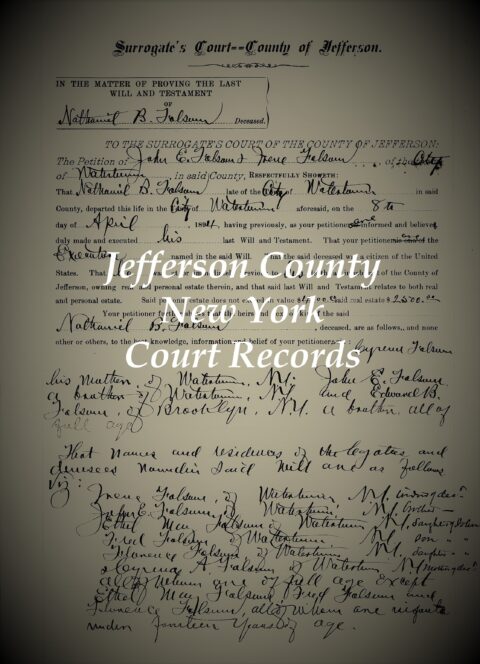 Surrogate's Court--County of Jefferson.
IN THE MATTER OF PROVING THE LAST
WILL AND TESTAMENT
OF
Nathaniel B. Folsom Deceased.
TO THE SURROGATE'S COURT OF THE COUNTY OF JEFFERSON:
The Petition of John E. Folsom & Irene Folsom of the City
of Watertown in said County, RESPECTFULLY SHOWETH:
That Nathaniel B. Folsom late of the City of Watertown in said
County, departed this life in the City of Watertown aforesaid, on the 8th
day of April having previously, as your petitioner informed and believes
duly made and executed his last Will and Testament. That your petitioner the
named in the said Will. That the said deceased was a citizen of the United
States. That of the County of
Jefferson, owning real and personal estate therein, and that said last Will and Testament relates to both real
and personal estate. Said estate does not value said real estate $2500.00
Your petitioner the said
Nathaniel B. Folsom, deceased, are as follows, and none
other or others, to the best knowledge, information and belief of your petitioner Folsom
Jefferson County
New York
Court Records
his mother, of Watertown, N.Y. John E. Folsom
a brother of Watertown, N.Y. and Edward B.
Folsom, of Brooklyn, N.Y. a brother all of
full age
That names and residences of the legatees and
devisees named in said Will are as follows
viz:
Irene Folsom, of Watertown N.Y.
John E. Folsom, of Watertown, N.Y. brother
Ethel May Folsom of Watertown N.Y. daughter
Fred Folsom of Watertown N.Y. son " "
Florence Folsom of Watertown N.Y. daughter " "
A Folsom of Watertown N.Y.
all of whom are of full age except
Ethel May Folsom, Fred Folsom and
Florence Folsom, all of whom are infants
under fourteen years of age.